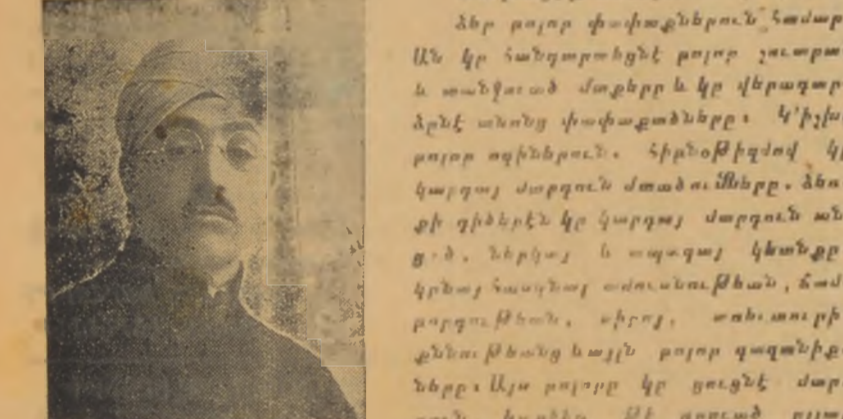 ձեր բոլոր փափաքներուն համար
Ան կը հանդարտեցնէ բոլոր շուարա
և տանջուած մտքերը և կը վերադար
ձընէ անոնց փափաքածները։ Կ'իշխէ
բոլոր ոգիներուն. հիբնօթիզմով կը
կարդայ մարդուն մտածումները. ձեռ
քի գիծերէն կը կարդայ մարդուն ան
ց ած, ներկայ և ապագայ կեանքը
կրնայ հասկնալ ամուսնութեան, ճամ
բորդութեան, սիրոյ, առեւտուրի
քննութեանց ևայլն բոլոր գաղանիք
ները։ Այս բոլորը կը ցուցնէ մար